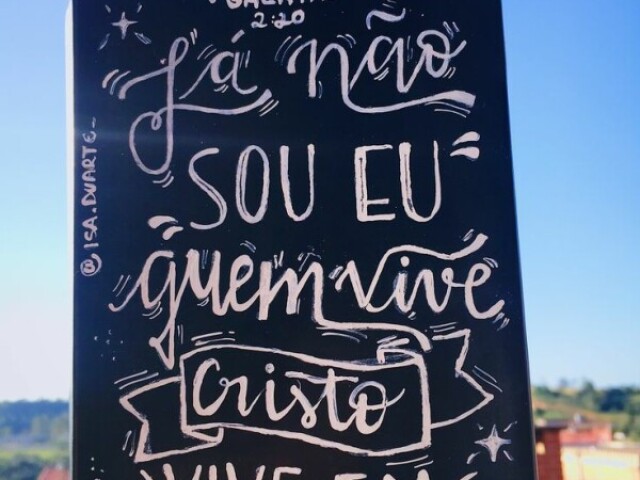 2:20
Já não
SOU EU
quem vive
Cristo
VIVE EM
@ISA.DUARTE_